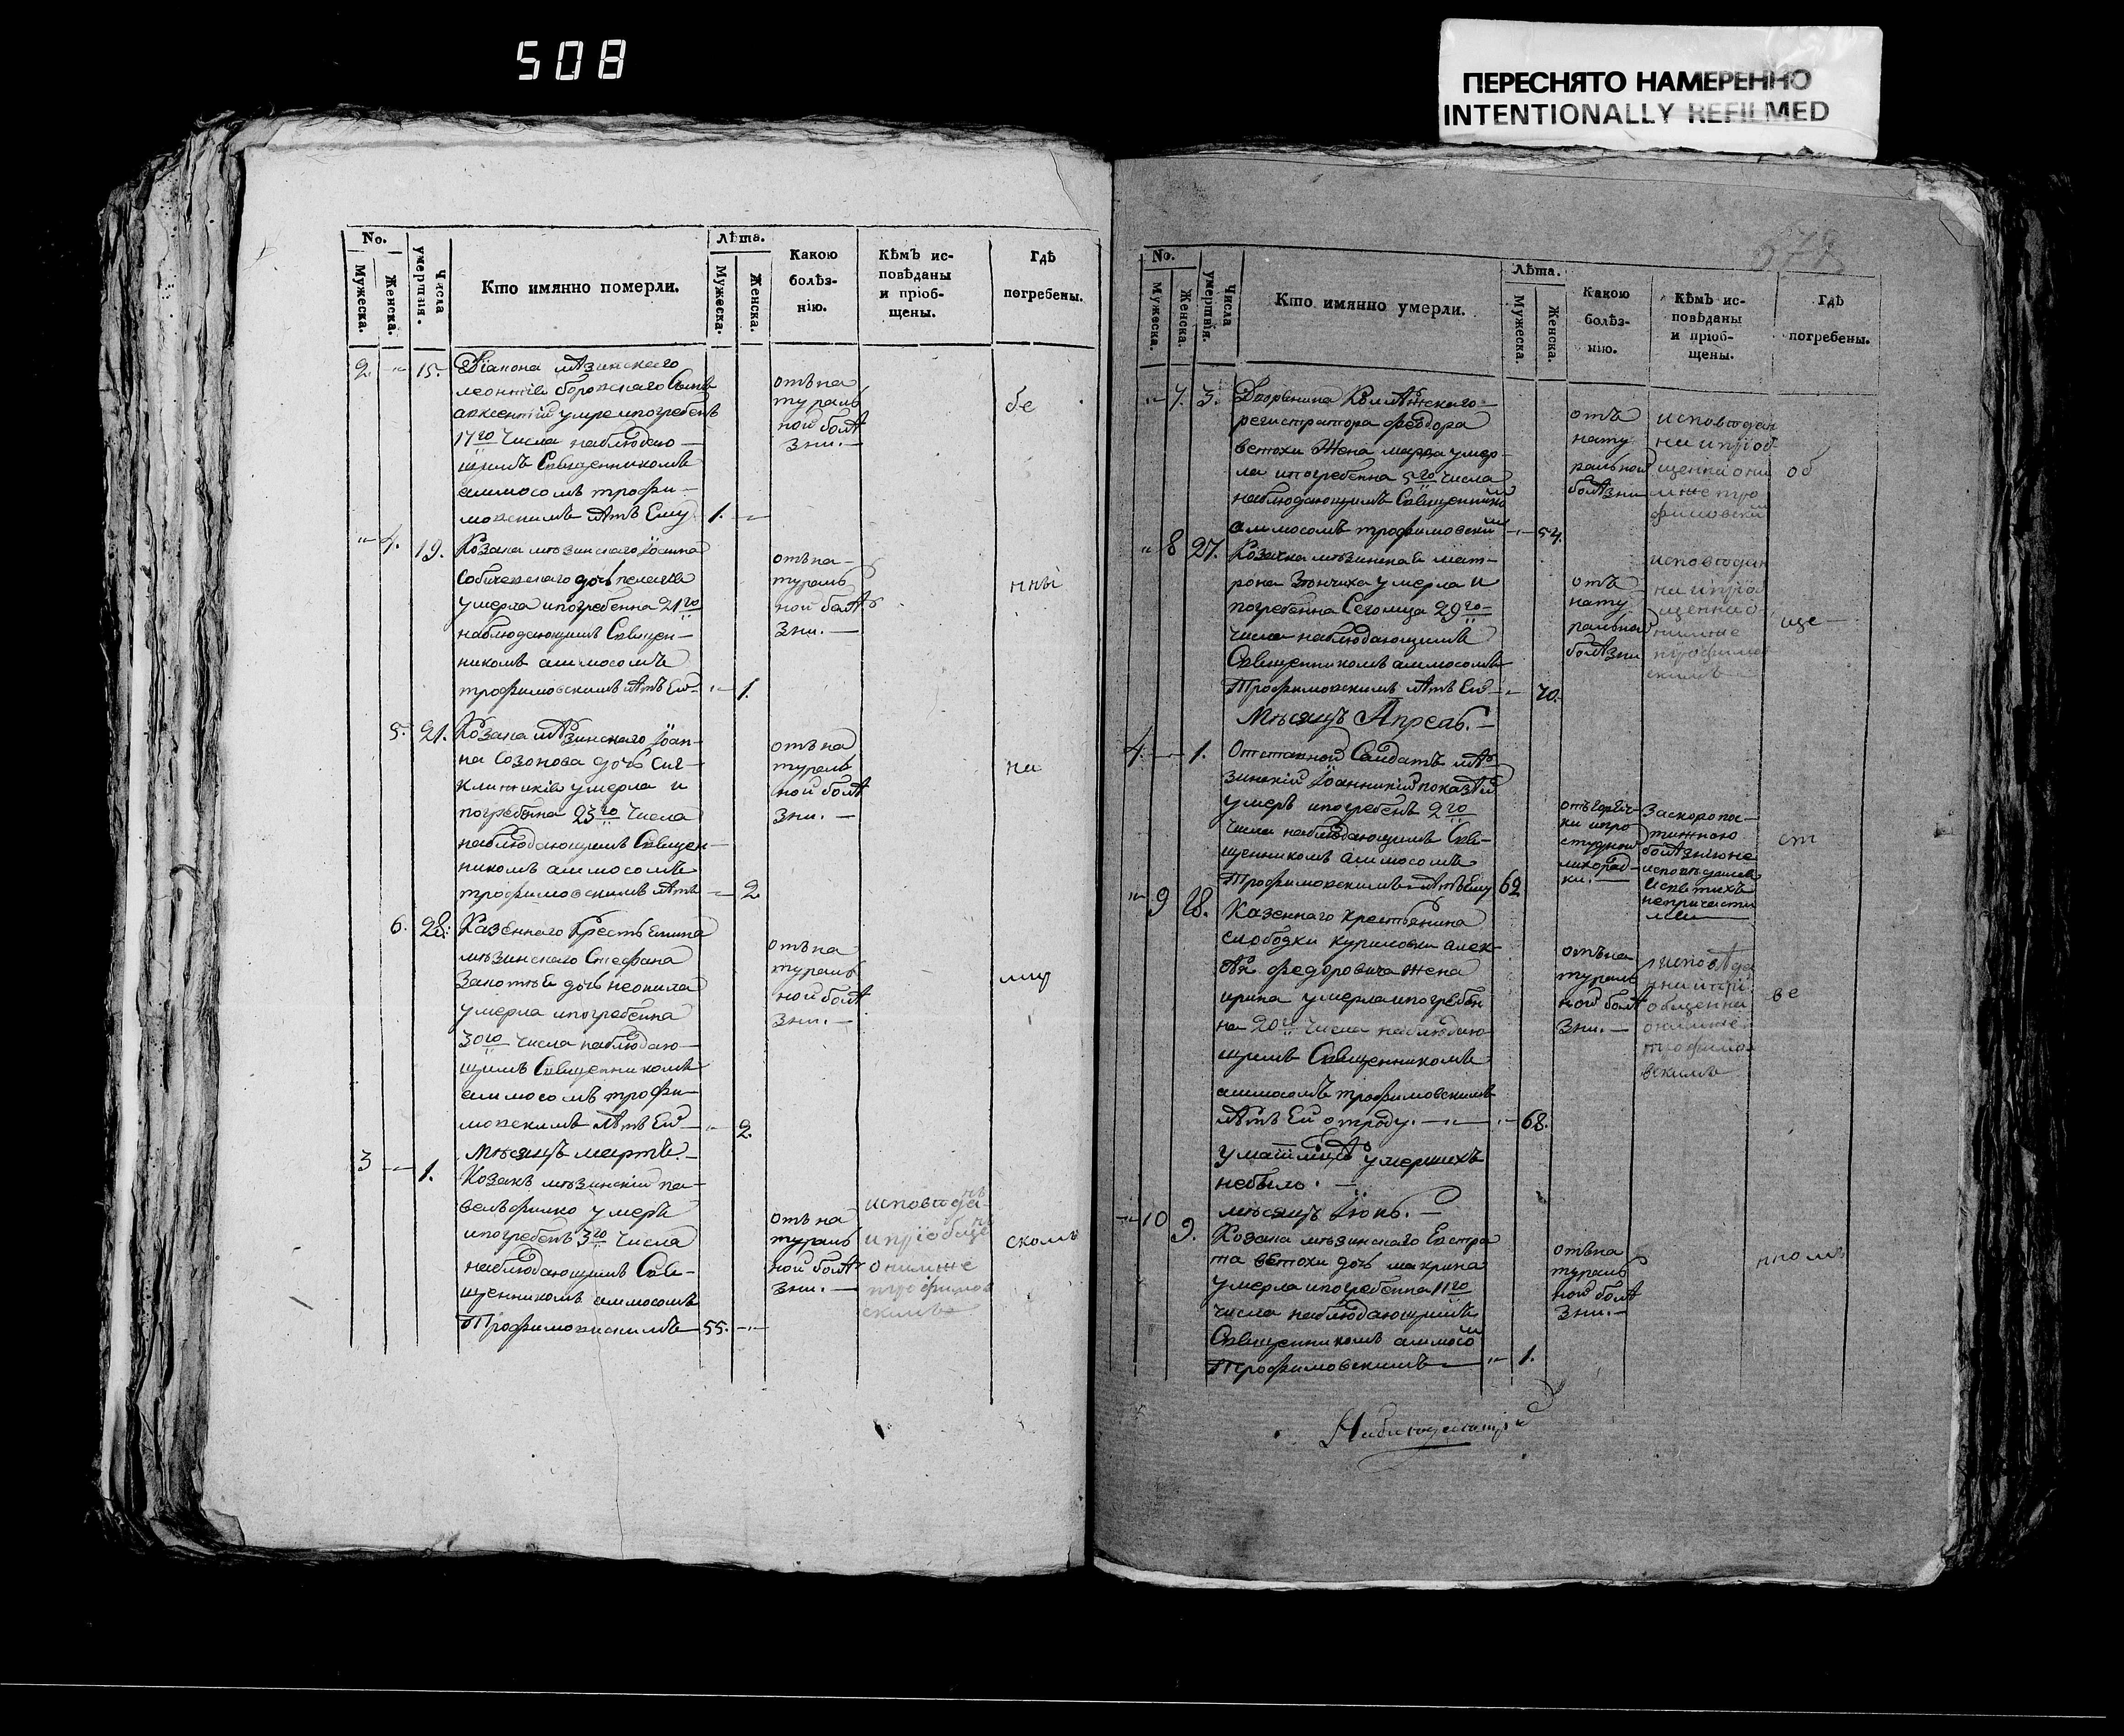 508
ПЕРЕСНЯТО НАМЕРЕННО
INTENTIONALLY REFILMED
No.
Мужеска.
Женска.
Числа умертвія.
Кто имянно померли.
Лѣта.
Мужеска.
Женска.
Какою болѣз-
нію.
Кѣмъ ис-
повѣданы
и пріоб-
щены.
Гдѣ
погребены.
2. " 15. Діакона мѣзинскаго
леонтія боровскаго Сынъ
авксентій умре ипогребенъ
17го числа наблюдаю-
щимъ Священникомъ
аммосомъ трофи-
мовскимъ лѣтъ Ему 1. "
отъ на
тураль
ной болѣ
зни.
бе
" 4. 19. Козака мѣзинскаго
дочь пелагія
умерла ипогребенна 21го
наблюдающимъ Священ-
никомъ аммосомъ
трофимовскимъ лѣтъ Ей " 1.
отъ на-
тураль
ной болѣ
зни.
нны
5. 21. Козака мѣзинскаго Іоан-
на Созонова дочь Син-
клитикія умерла и
погребена 23го числа
наблюдающимъ Священ-
никомъ аммосомъ
трофимовскимъ лѣтъ 2
отъ на
тураль
ной болѣ
зни.
на
6. 28. Казеннаго Крестьянина
мѣзинскаго Стефана
дочь неонила
умерла ипогребенна
30го числа наблюдаю-
щимъ Священникомъ
аммосомъ трофи-
мовскимъ лѣтъ Ей " 2.
отъ на
тураль
ной болѣ
зни.
мир
мѣсяцъ мартъ.
3 " 1. Козакъ мѣзинскій па-
велъ филко умеръ
ипогребенъ 3го числа
наблюдающимъ Свя-
щенникомъ аммосомъ
Трофимовскимъ 55. "
отъ на
тураль
ной болѣ
зни.
исповѣда
и пріобще
онимже
трофимов
скимъ
скомъ
678
No.
Мужеска.
Женска.
Числа умертвія.
Кто имянно умерли.
Лѣта.
Мужеска.
Женска.
Какою
болѣз-
нію.
Кѣмъ ис-
повѣданы
и пріоб-
щены.
Гдѣ
погребены.
" 7. 3. Дворянина Коллѣжскаго
регистратора феодора
ветохи Жена марѳа умер-
ла ипогребенна 5го числа
наблюдающимъ Священнико
аммосомъ трофимовски " 54.
отъ
нату
ральной
болѣзни
исповѣдан
на и пріоб
щенна они
мже тро
фимовски
об
" 8 27. Козачка мѣзинская мат-
рона умерла и
погребенна Сегомца 29го
числа наблюдающимъ
Священникомъ аммосомъ
Трофимовскимъ лѣтъ Ей " 70.
отъ
нату
ральной
болѣзни
исповѣдан
на и пріоб
щенна о-
нимже
трофимов
скимъ
ще
Мѣсяцъ Апрель.
4. " 1. Отставной Салдатъ мѣ-
зинскій Іоанникій
умеръ ипогребенъ 2го
числа наблюдающимъ Свя-
щенникомъ аммосомъ
Трофимовскимъ лѣтъ Ему 62
отъ горяч-
ки ипро
студной
лихорад-
ки.
Заскоропос-
тижною
болѣзнію не
исповѣданъ
Исвятыхъ
непричасти
ст
" 9 18. Казеннаго крестьянина
слободки куриловки алек-
ѣя федоровича жена
ирина умерла ипогребен
на 20го числа наблюдаю
щимъ Священникомъ
аммосомъ трофимовскимъ
лѣтъ Ей отроду. " 68.
отъ на
тураль
ной болѣ
зни.
исповѣда
нна ипрі
общенна
онимже
трофимо
вскимъ
ве
умаіи мцѣ умершихъ
небыло.
мѣсяцъ Іюнь.
" 10 9. Козака мѣзинскаго Евстра
та ветохи дочь макрина
умерла ипогребенна 11го
числа наблюдающимъ
Священникомъ аммосо
Трофимовскимъ " 1.
отъ на
тураль
ной болѣ
зни.
нномъ
Наблюдающій